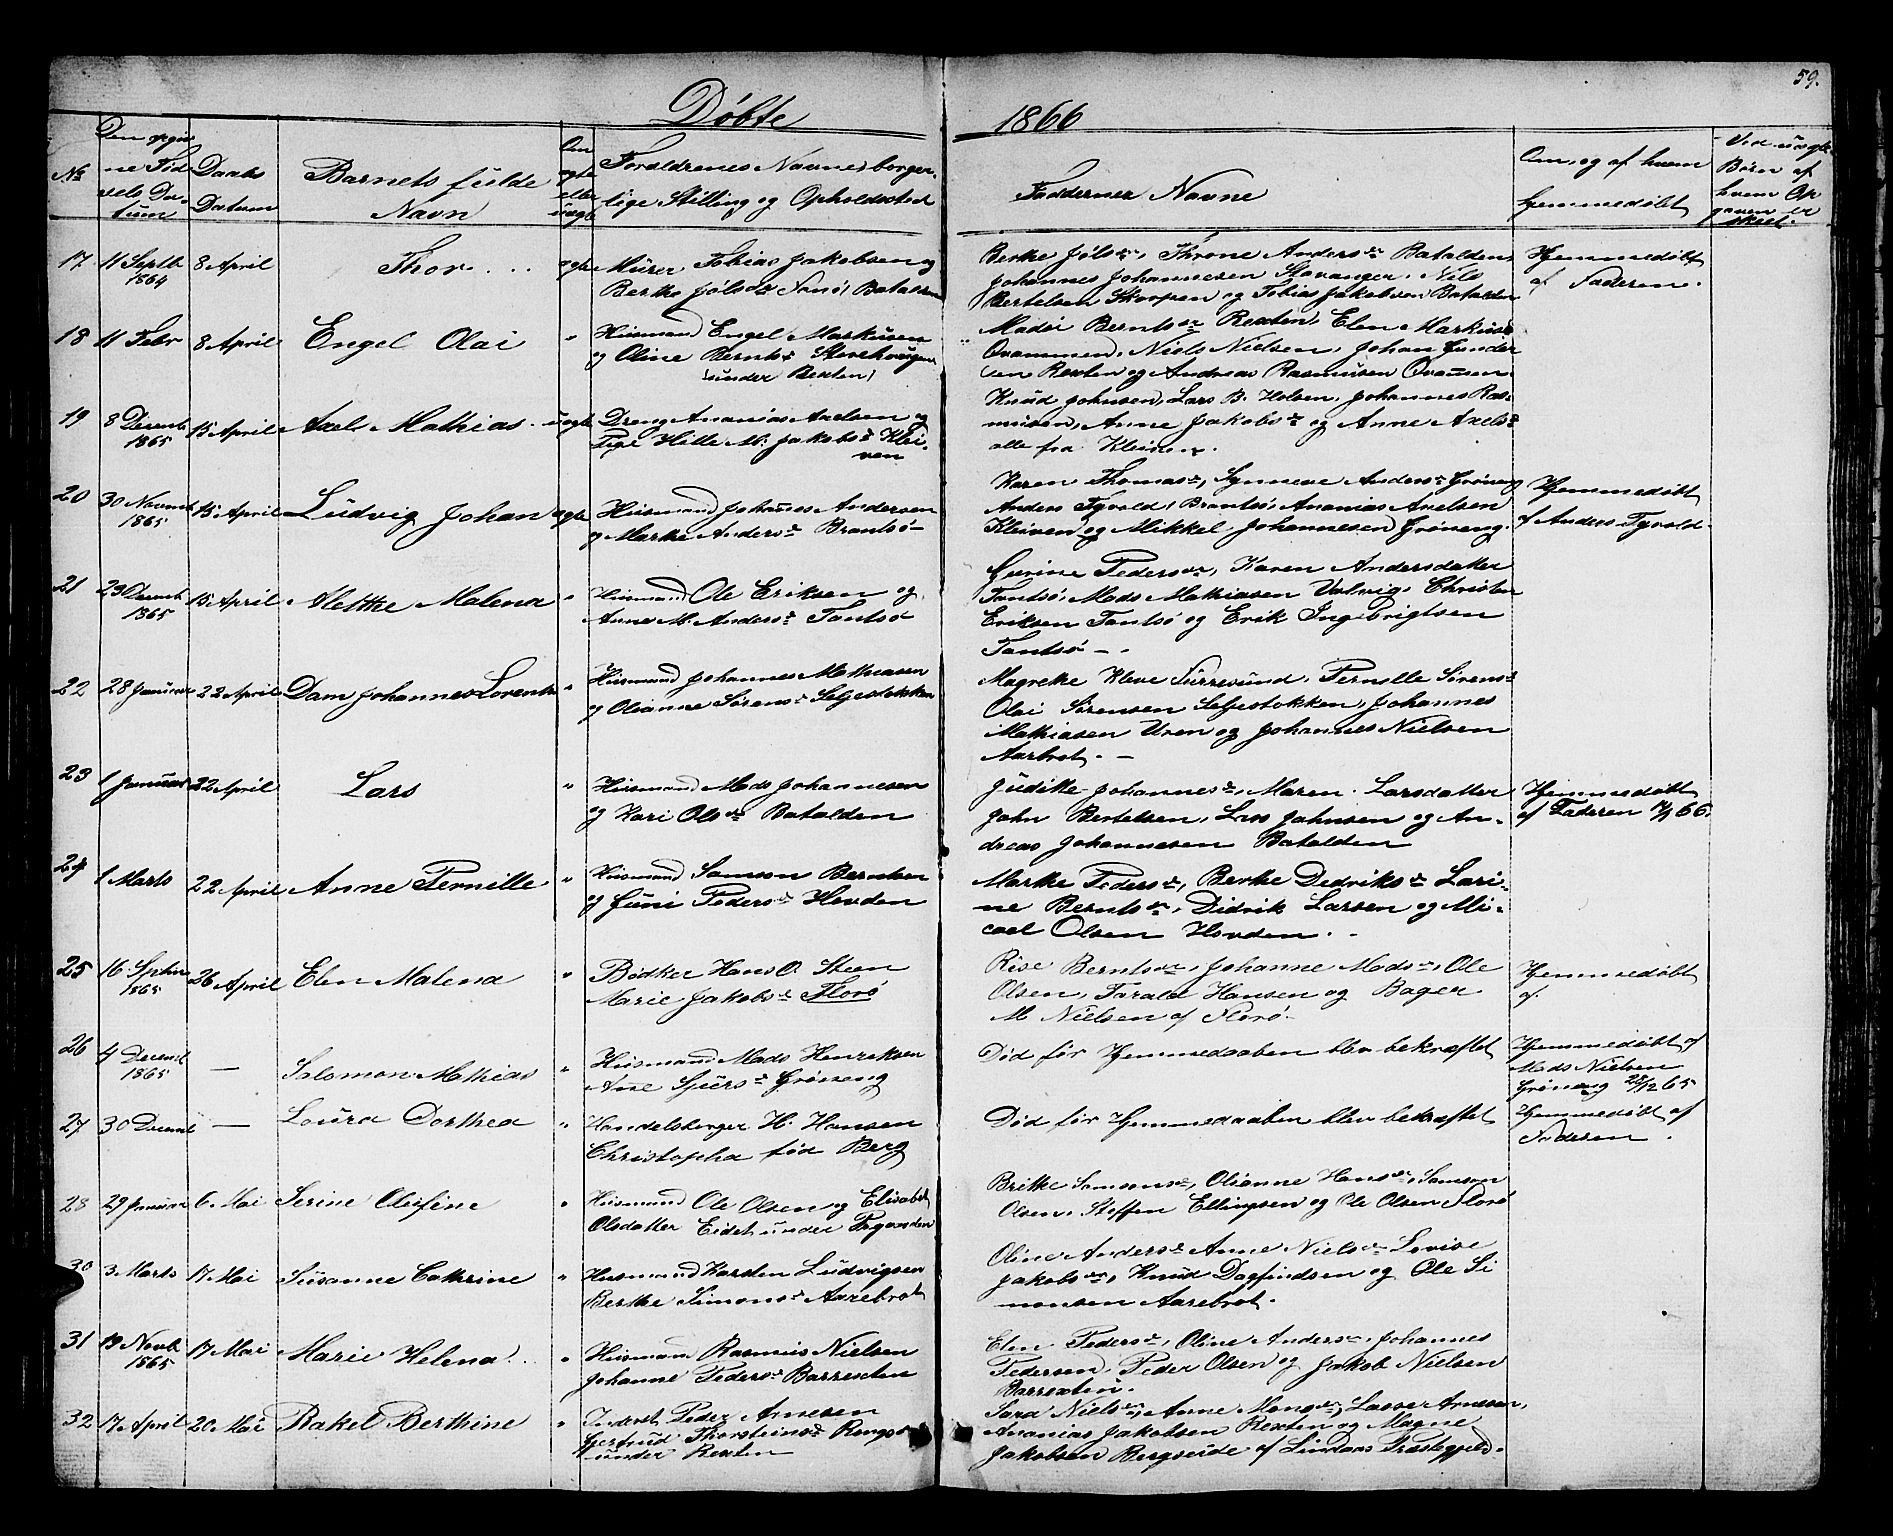 59.
Døbte 1866
No
Den opgiv
ne Fød
sels Da
tum
Daabs
Datum
Barnets fulde
Navn
Om
ægte
eller
uægte
Forældrenes Navne, borger
lige Stilling og Opholdssted
Faddernes Navne
Om, og af hvem
hjemmedøbt
Ved uægte
Børn af
hvem Op
gaven er
skeet.
17 11 Septb 1864 8 April Thor ægte
Murer Tobias Jakobsen og
Berthe Jølsdr Nonø, Batalden
Berthe Jølsdr, Throne Andersdr Batalden,
Johannes Johannesen Stavanger, Nils
Bertelsen Skorpen og Tobias Jakobsen Batalden
Hjemmedøbt
af Faderen.
18 11 Febr 8 April Engel Olai "
Husmand Engel Markusen
og Oline Berntsdr
(under Rexten)
Madsi Berntsdr Rexten, Elen Markusd
Ovammen, Niels Nielsen, Johan Gunder
sen Rexten og Andreas Rasmusen Ovamen
19 8 Decemb 1865 15 April Axel Mathias uægte
Dreng Ananias Axelsen og
Pige Hille M. Jakobsdr Klei
ven
Knud Johnsen, Lars B. Holsen, Johannes Ras
musen, Anne Jakobsdr og Anne Axelsdr
alle fra Kleiven.
20 30 Novemb 1865 15 April Ludvig Johan ægte
Husmand Johannes Andersen
og Marthe Andersdr Brantsø
Karen Thomasdr, Synneve Andersdr Grøneng
Anders Tyvold, Brantsø, Ananias Axelsen
Kleiven og Mikkel Johannesen Grøneng.
Hjemmedøbt
af Anders Tyvold.
21 23 Decemb 1865 15 April Alethe Malena "
Husmand Ole Eriksen og
Anne M. Andersdr Tantsø
Gurine Pedersdr, Karen Andersdatter
Tantsø, Mads Mathiasen Valvig, Christen
Eriksen Tantsø og Erik Ingebrigtsen
Tantsø.
22 28 Januar 22 April Dam Johannes Lorents "
Husmand Johannes Mathiasen
og Olianne Sørensdr Seljestokken
Magrethe Kleve Surresund, Pernille Sørensdr
Olai Sørensen Seljestokken, Johannes
Mathiasen Uren og Johannes Nielsen
Aarbrot.
23 1 Januar 22 April Lars "
Husmand Mads Johannesen
og Kari Olsdr Batalden
Judithe Johannesdr, Maren Larsdatter
John Bertelsen, Lars Johnsen og An-
dreas Johannesen Batalden
Hjemmedøbt
af Faderen 66.
24 1 Marts 22 April Anne Pernille "
Husmand Samson Berntsen
og Guni Pedersdr Hovden
Marthe Pedersdr, Berthe Dedriksdr Lari-
ne Berntsdr, Didrik Larsen og Mi-
cael Olsen Hovden.
25 16 Septbr 1865 26 April Elen Malena "
Bødker Hans O. Steen
Marie Jakobsdr Florø
Rise Berntsdr, Johanne Madsdr, Ole
Olsen, Tarald Hansen og Bager
M Nielsen af Florø.
Hjemmedøbt
af.
26 4 Decemb 1865 — Salomon Mathias "
Husmand Mads Henriksen
Ane Sjursdr Grøneng
Død før Hjemmedaaben blev bekræftet
Hjemmedøbt af
Mads Nielsen
Grøneng 28/12 65
27 30 Decemb — Laura Dorthea "
Handelsborger H. Hansen
Christopha fød Berg
Død før Hjemmedaaben blev bekræftet
Hjemmedøbt af
Faderen.
28 29 Januar 6 Mai Serine Olefine "
Husmand Ole Olsen og Elisabet
Olsdatter Eidet under
Brithe Samsonsdr, Olianne Hansdr, Samson
Olsen, Steffen Ellingsen og Ole Olsen Florø
30 3 Marts 17 Mai Susanne Cathrine "
Husmand Karsten Ludvigsen
Berthe Simonsdr Aarebrot
Oline Andersdr Anne Nielsdr Lovise
Jakobsdr, Knud Dagfindsen og Ole Si
monsen Aarebrot.
31 19 Novb 1865 17 Mai Marie Helena "
Husmand Rasmus Nielsen
Johanne Pedersdr Barrexten
Elen Pedersdr, Oline Andersdr, Johannes
Pedersen, Peder Olsen og Jakob Nielsen
Barrexten.
32 17 April 20 Mai Rakel Berthine "
Inderst Peder Arnesen
Gjertrud Thorsteinsdr
under Rexten
Sara Nielsdr, Anne Monsdr, Lasse Arnesen,
Ananias Jakobsen Rexten og Magne
Jakobsen Bergseide af Lindaas Præstegjeld.